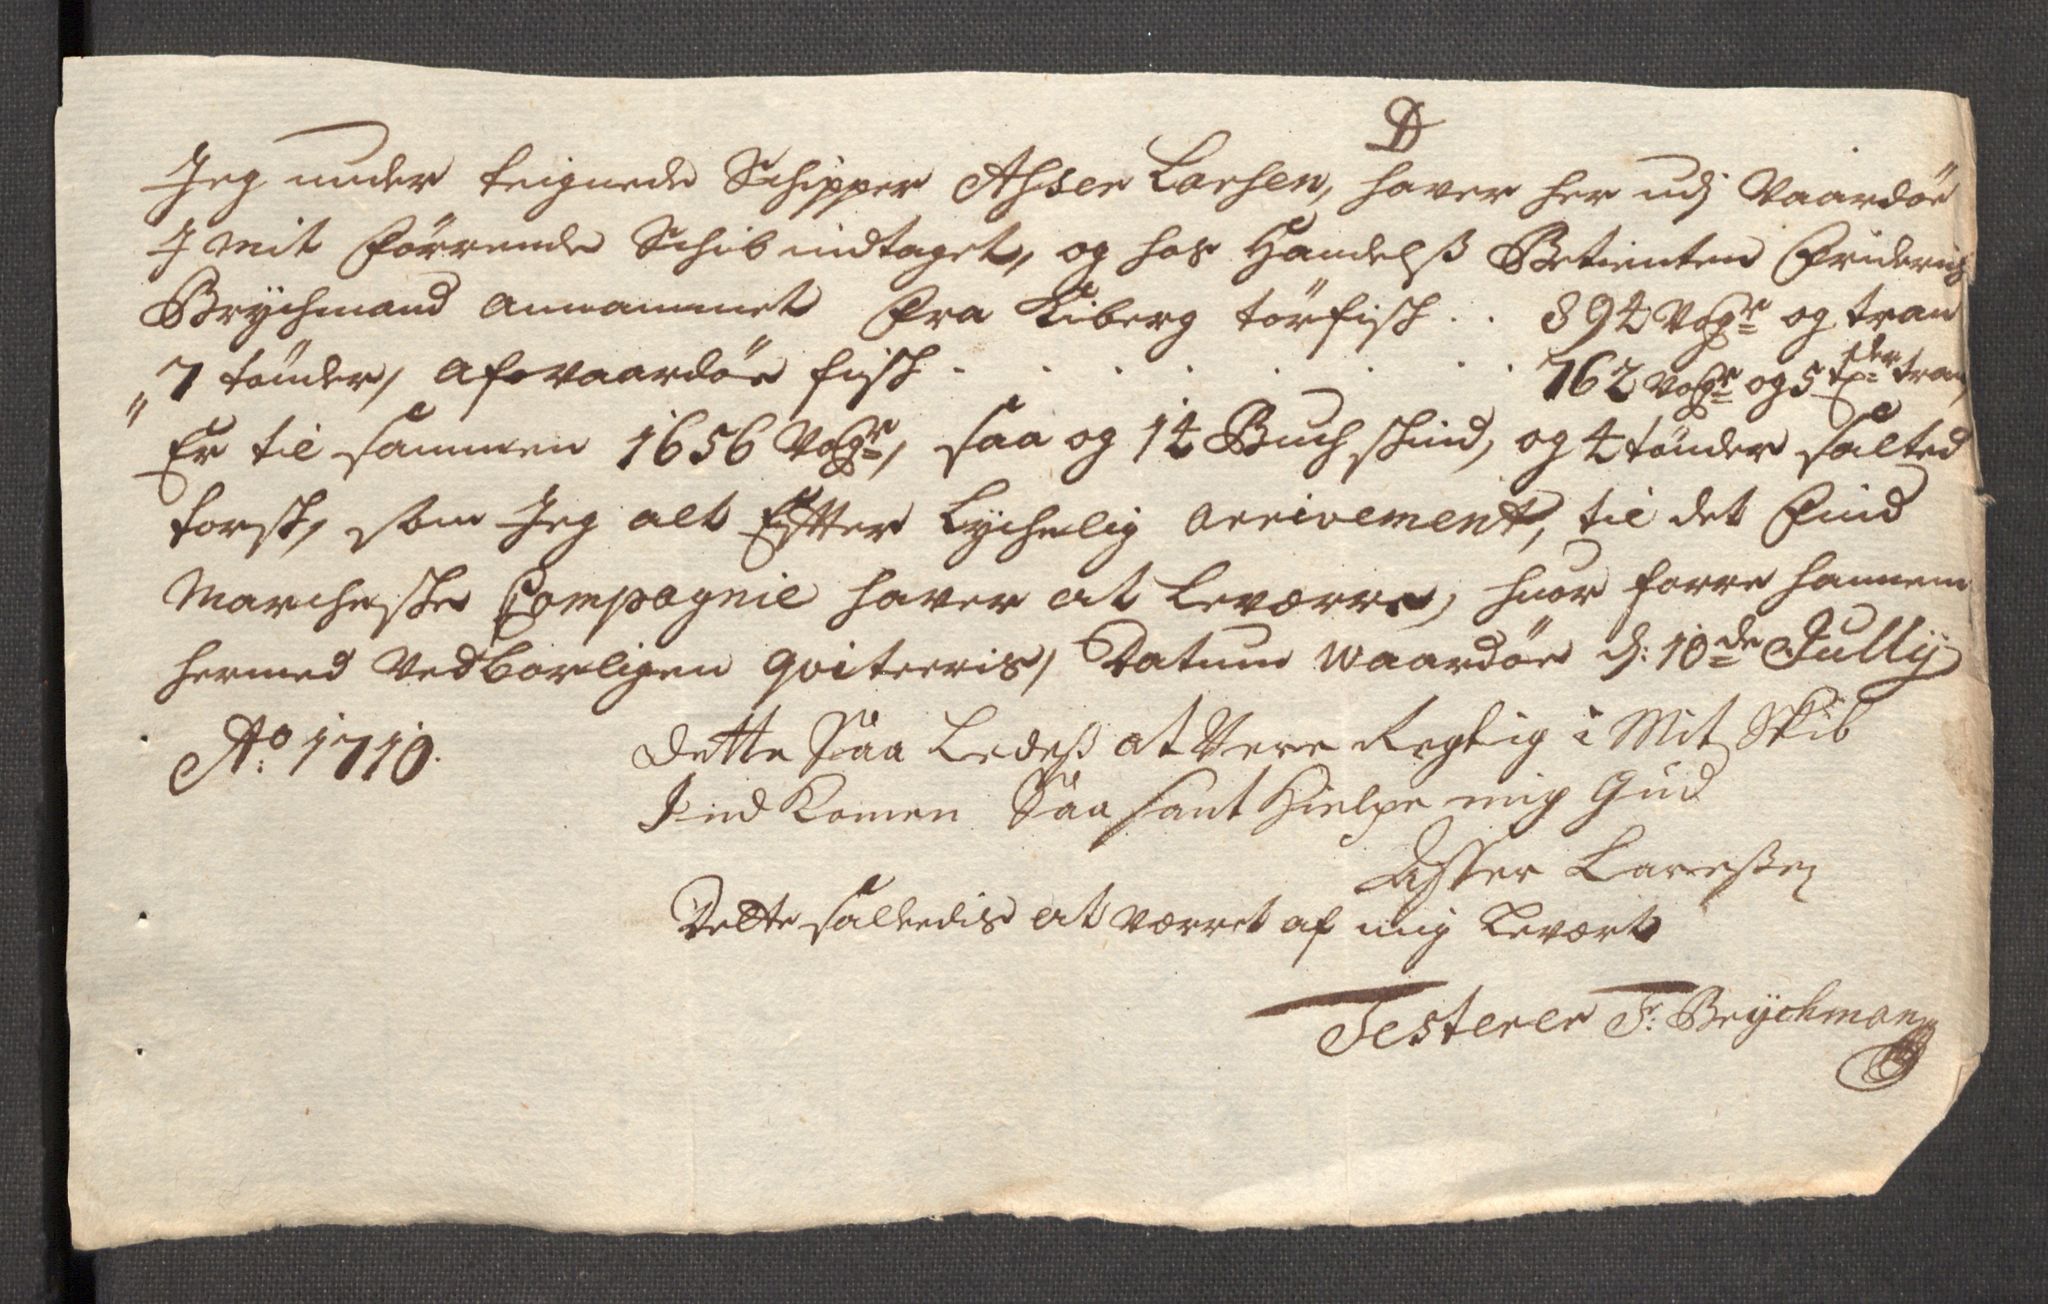 D
Jeg under teignede Schipper Ahser Larhen, haver her udj Vaardöe
J mit förrende Schib indtaget, og hos Handelß Betienten Friderich
Brÿchmand annammet fra Kiberg törfisch . . 894 Voger og tran
7 tönder, af waardöe fisch . . . . . . . . 762 Voger og 5 tder tran,
Er til sammen 1656 Voger, saa og 14 Buch schind, og 4 tönder salted
torsk, som Jeg alt Efftter Lychelig arrivement, til det Find
Marcheske Compagnie haver at Leværre, huor forre hannem
hermed Vedborligen qviteeris, Datum Waardöe d: 10de Jullÿ
Ao: 1710.
Dette Saa Ledeß at Vere Regtig i Mit Skib
Ind Komen Saa sant Hielpe mig Gud
Asser Larreßen
Dette saaledis at værret af mig Levært
Testerer Fr: Brÿchman